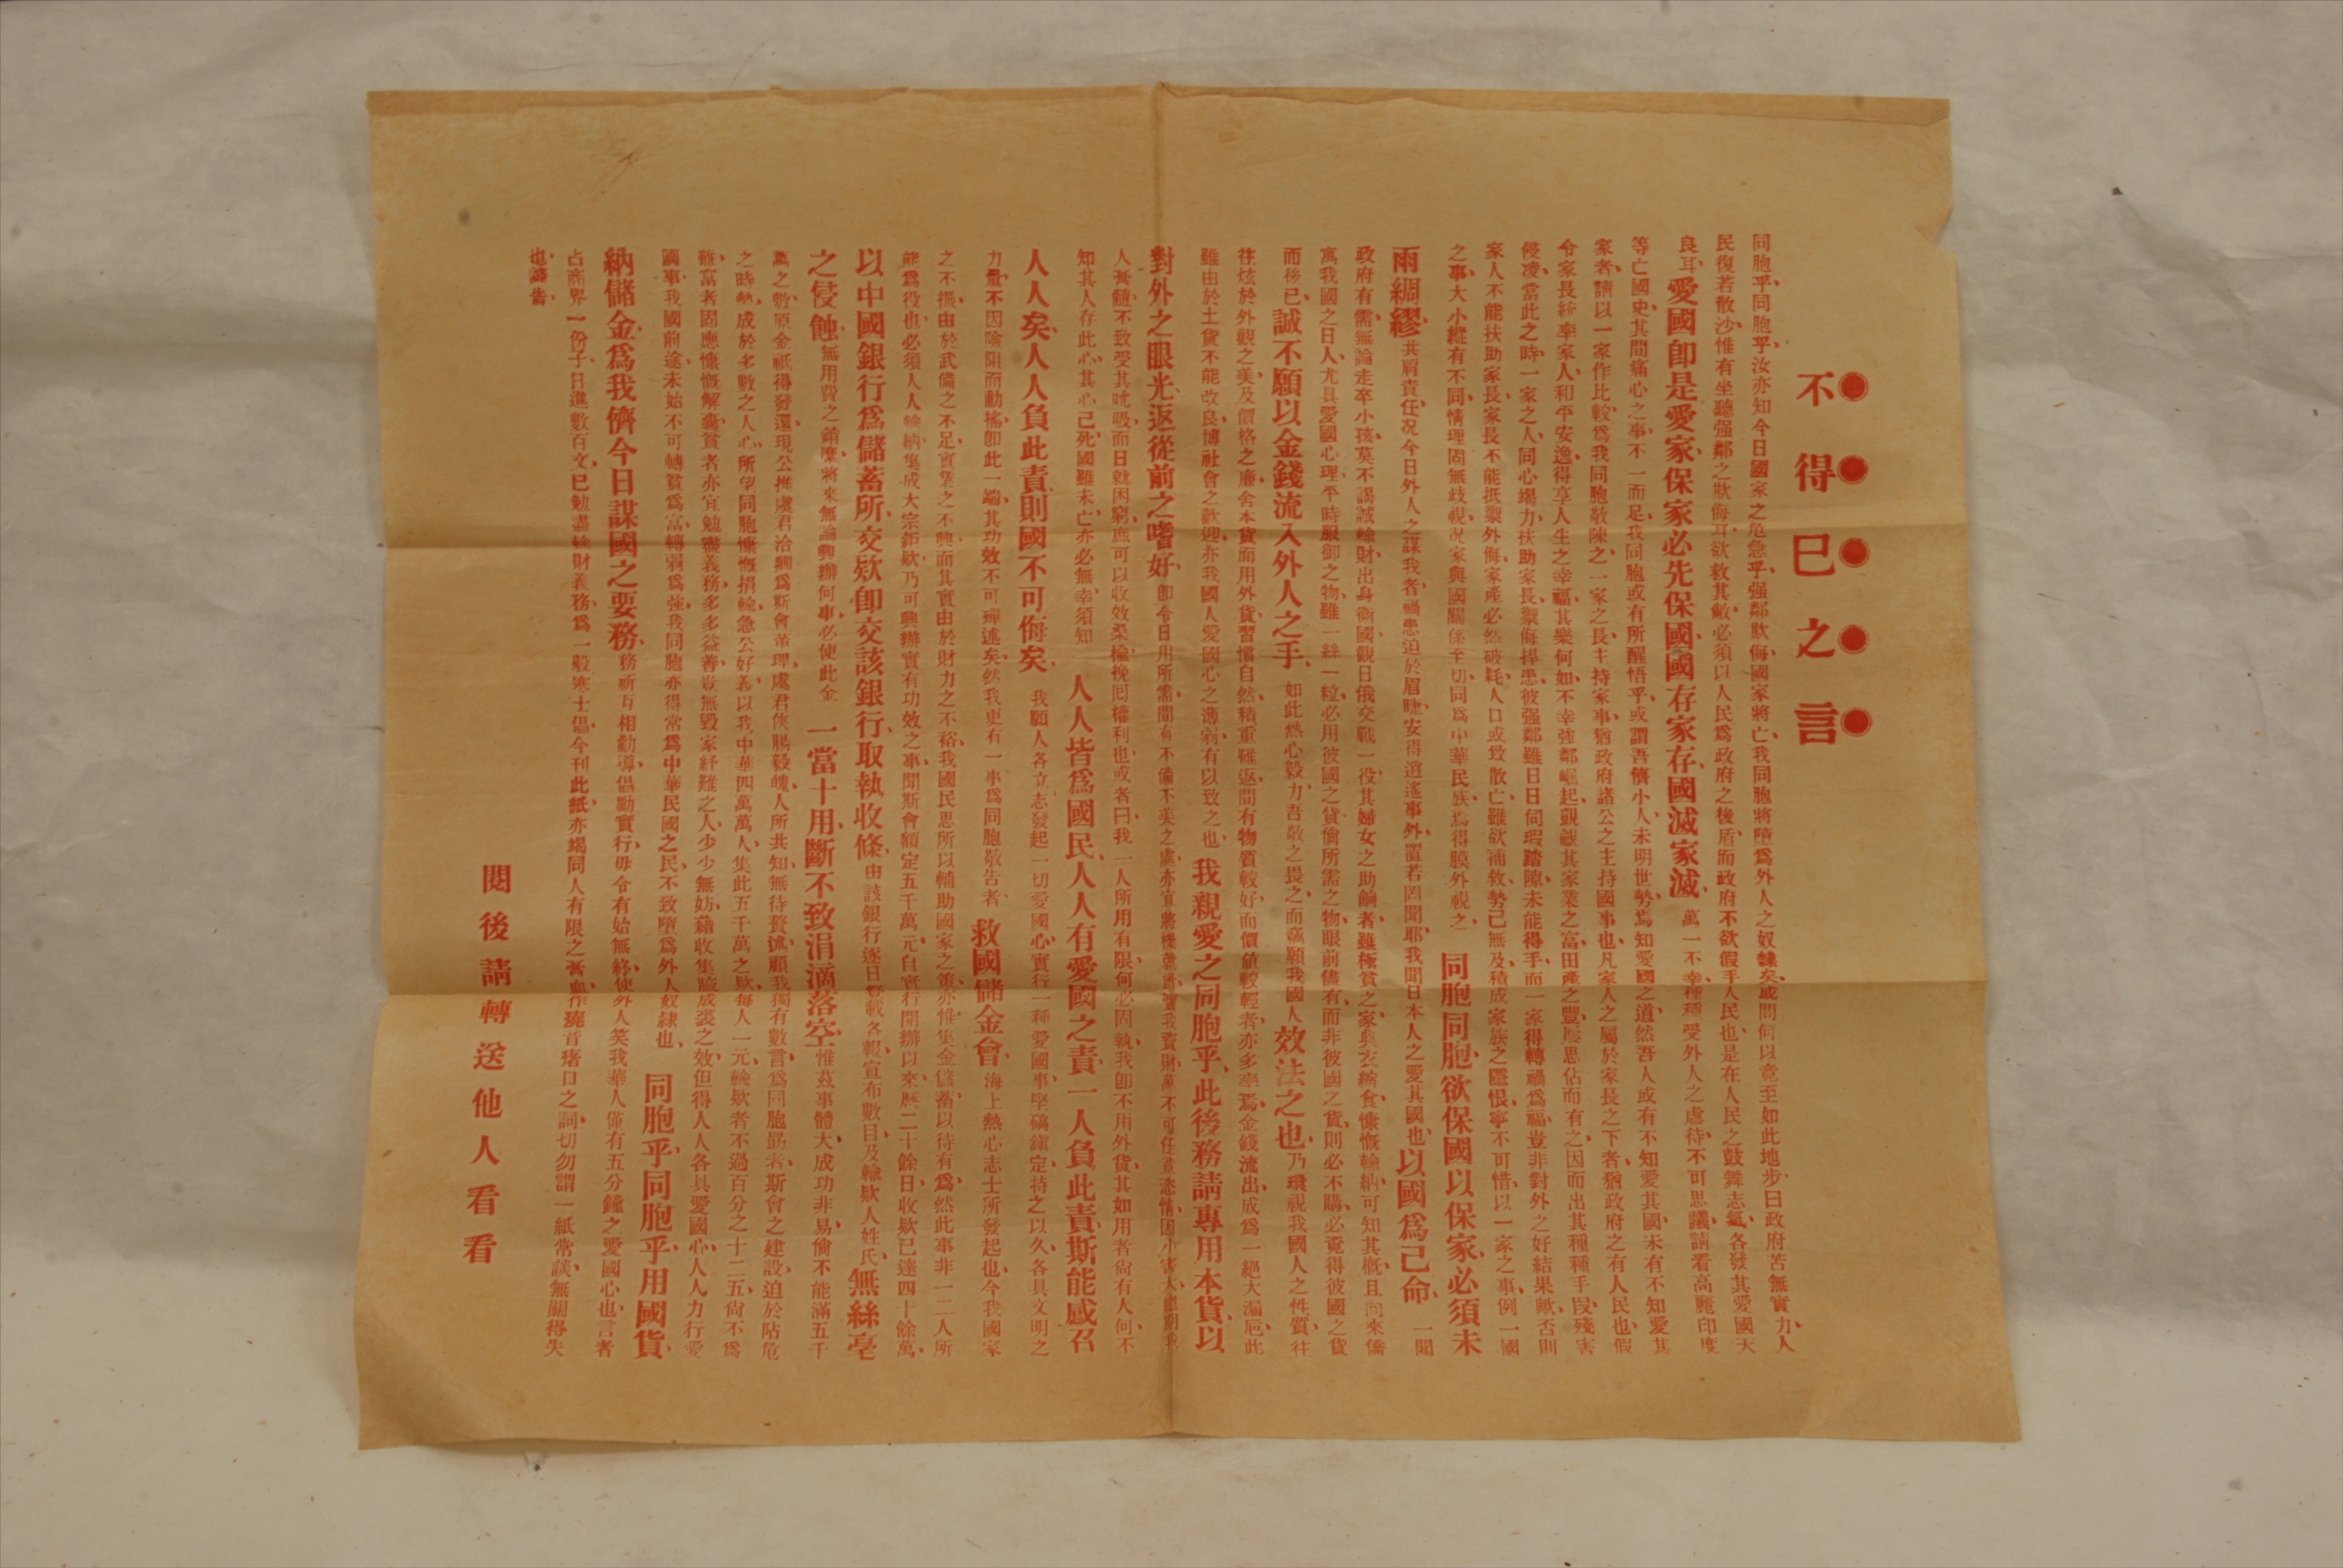 不得已之言
同胞乎同胞乎汝亦知今日國家之危急乎强鄰欺侮國家將亡我同胞將墮爲外人之奴隸矣或問何以竟至如此地步曰政府苦無實力人
民復若散沙惟有坐聽强鄰之欺侮耳欲救其敝必須以人民爲政府之後盾而政府不欲假手人民也是在人民之鼓舞志氣各發其愛國天
良耳愛國卽是愛家保家必先保國國存家存國滅家滅萬一不幸種種受外人之虐待不可思議請看高麗印度
等亡國史其間痛心之事不一而足我同胞或有所醒悟乎或謂吾儕小人未明世勢焉知愛國之道然吾人或有不知愛其國未有不知愛其
家者請以一家作比較爲我同胞敬陳之一家之長主持家事猶政府諸公之主持國事也凡家人之屬於家長之下者猶政府之有人民也假
令家長統率家人和平安逸得享人生之幸福其樂何如不幸強鄰崛起覬覦其家業之富田產之豐屢思佔而有之因而出其種種手段殘害
侵凌當此之時一家之人同心竭力扶助家長禦侮捍患彼强鄰雖日日伺瑕蹈隙未能得手而一家得轉禍爲福豈非對外之好結果歟否則
家人不能扶助家長家長不能抵禦外侮家產必然破耗人口或致散亡雖欲補救勢已無及積成家族之隱恨寧不可惜以一家之事例一國
之事大小縱有不同情理固無歧視况家與國關係至切同爲中華民族焉得膜外視之同胞同胞欲保國以保家必須未
雨綢繆共肩責任况今日外人之謀我者禍患迫於眉睫安得逍遙事外置若罔聞耶我聞日本人之愛其國也以國爲己命一聞
政府有需無論走卒小孩莫不竭誠輸財出身衛國觀日俄交戰一役其婦女之助餉者雖極貧之家典衣縮食慷慨輸納可知其概且向來僑
寓我國之日人尤具愛國心理平時服御之物雖一絲一粒必用彼國之貨倘所需之物眼前儘有而非彼國之貨則必不購必竟得彼國之貨
而後已誠不願以金錢流入外人之手如此熱心毅力吾敬之畏之而竊願我國人效法之也乃環視我國人之性質往
往炫於外觀之美及價格之廉舍本貨而用外貨習慣自然積重難返間有物質較好而價値較輕者亦多率焉金錢流出成爲一絕大漏巵此
雖由於土貨不能改良博社會之歡迎亦我國人愛國心之薄弱有以致之也我親愛之同胞乎此後務請專用本貨以
對外之眼光返從前之嗜好卽令日用所需間有不備不美之處亦宜將機就
人膏髓不致受其吮吸而日就困窮庶可以收效桑榆挽囘權利也或者曰我一人所用有限何必固執我卽不用外貨其如用者尙有人何不
知其人存此心其心已死國雖未亡亦必無幸須知人人皆爲國民人人有愛國之責一人負此責斯能感召
人人矣人人負此責則國不可侮矣我願人各立志發起一切愛國心實行一種愛國事堅確鎮定持之以久各具文明之
力量不因險阻而動搖卽此一端其功效不可殫述矣然我更有一事爲同胞敬告者救國儲金會海上熱心志士所發起也今我國家
之不振由於武備之不足實業之不興而其實由於財力之不裕我國民思所以輔助國家之策亦惟集金儲蓄以待有爲然此事非一二人所
能爲役也必須人人輸納集成大宗鉅欵乃可興辦實有功效之事聞斯會額定五千萬元自實行開辦以來歷二十餘日收欵已達四十餘萬
以中國銀行爲儲蓄所交欵卽交該銀行取執收條由該銀行逐日登載各報宣布數目及輸欵人姓氏無絲毫
之侵蝕無用費之銷縻將來無論興辦何事必使此金一當十用斷不致涓滴落空惟茲事體大成功非易倘不能滿五千
萬之數原金祇得發還現公推虞君洽卿爲斯會董理虞君俠腸毅魄人所共知無待贅述願我獨有數言爲同胞勗者斯會之建設迫於阽危
之時勢成於多數之人心所望同胞慷慨捐輸急公好義以我中華四萬萬人集此五千萬之欵每人一元輸欵者不過百分之十二五尙不爲
難富者固應慷慨解囊貧者亦宜勉盡義務多多益善豈無毀家紓難之人少少無妨藉收集腋成裘之效但得人人各具愛國心人人力行愛
國事我國前途未始不可轉貧爲富轉弱爲強我同胞亦得常爲中華民國之民不致墮爲外人奴隸也同胞乎同胞乎用國貨
納儲金爲我儕今日謀國之要務務祈互相勸導倡勵實行毋令有始無終使外人笑我華人僅有五分鐘之愛國心也言者
占商界一份子日進數百文已勉盡輸財義務爲一般寒士倡今刊此紙亦竭同人有限之膏血作曉音瘏口之詞切勿謂一紙常談無關得失
也謹告
閱後請轉送他人看看